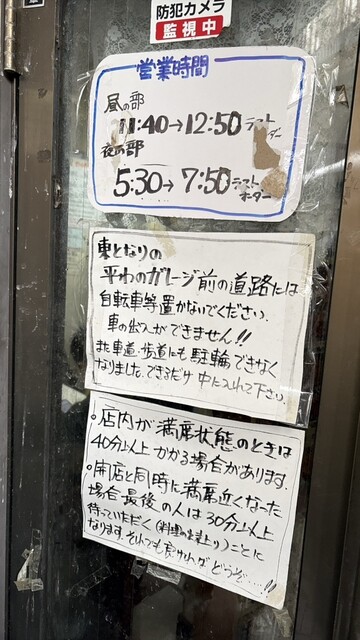 防犯カメラ
監視中
営業時間
昼の部
11:40→12:50ラストオーダー
夜の部
5:30→7:50ラストオーダー
東となりの
平わのガレージ前の道路には
自転車等置かないでください.
車の出入ができません!!
また車道・歩道にも駐輪できなく
なりました.できるだけ中に入れて下さい.
・店内が満席状態のときは
40分以上かかる場合があります.
・開店と同時に満席近くなった
場合最後の人は30分以上
待っていただく(料理の出来上り)ことに
なります.それでも良ければどうぞ…!!